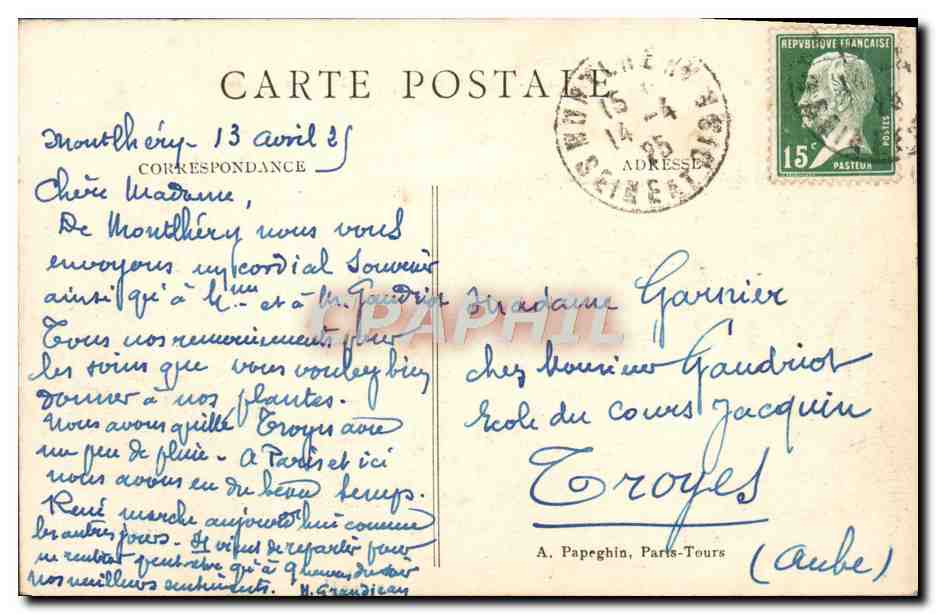 CARTE POSTALE
CORRESPONDANCE
ADRESSE
MONTLHERY
15 -4
14 25
SEINE ET OISE
REPUBLIQUE FRANÇAISE
POSTES
15c
PASTEUR
Montlhéry - 13 avril 25
Chère Madame,
De Montlhéry nous vous
envoyons un cordial souvenir
ainsi qu'à Mme et à M. Gaudriot
Tous nos remerciements pour
les soins que vous voulez bien
donner à nos plantes.
Nous avons quitté Troyes avec
un peu de pluie - A Paris et ici
nous avons eu du beau temps.
René marche aujourd'hui comme
les autres jours - Il vient de repartir pour
ne rentrer peut-être qu'à du soir
Nos meilleurs sentiments. H. Grandjean
Madame Garnier
chez Monsieur Gaudriot
Ecole du Cours Jacquin
Troyes
(Aube)
A. Papeghin, Paris-Tours
CPAPHIL